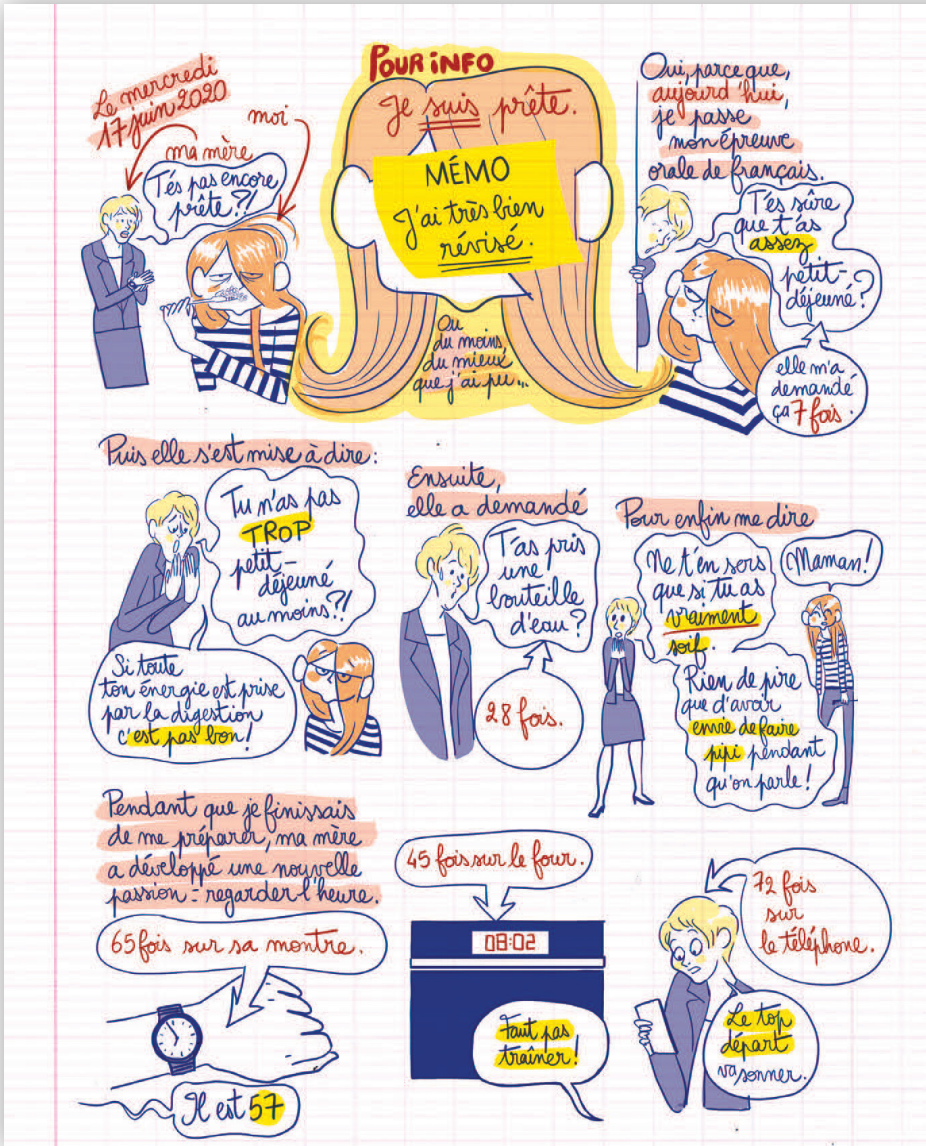 Le mercredi
17 juin 2020
moi
ma mère
T'és pas encore
prête?!
POUR iNFO
Je suis prête.
MÉMO
J'ai très bien
révisé.
Ou
du moins,
du mieux
que j'ai pu...
Oui, parce que,
aujourd'hui,
je passe
mon épreuve
orale de français.
T'és sûre
que t'as
assez
petit-
déjeuné?
elle m'a
demandé
ça 7 fois.
Puis elle s'est mise à dire:
Tu n'as pas
TROP
petit-
déjeuné
au moins?!
Si toute
ton énergie est prise
par la digestion
c'est pas bon!
Ensuite,
elle a demandé
T'as pris
une
bouteille
d'eau?
28 fois.
Pour enfin me dire
Ne t'en sers
que si tu as
vraiment
soif.
Maman!
Rien de pire
que d'avoir
envie de faire
pipi pendant
qu'on parle!
Pendant que je finissais
de me préparer, ma mère
a développé une nouvelle
passion: regarder l'heure.
65 fois sur sa montre.
Il est 57
45 fois sur le four.
08:02
Faut pas
traîner!
72 fois
sur
le téléphone.
Le top
départ
va sonner.